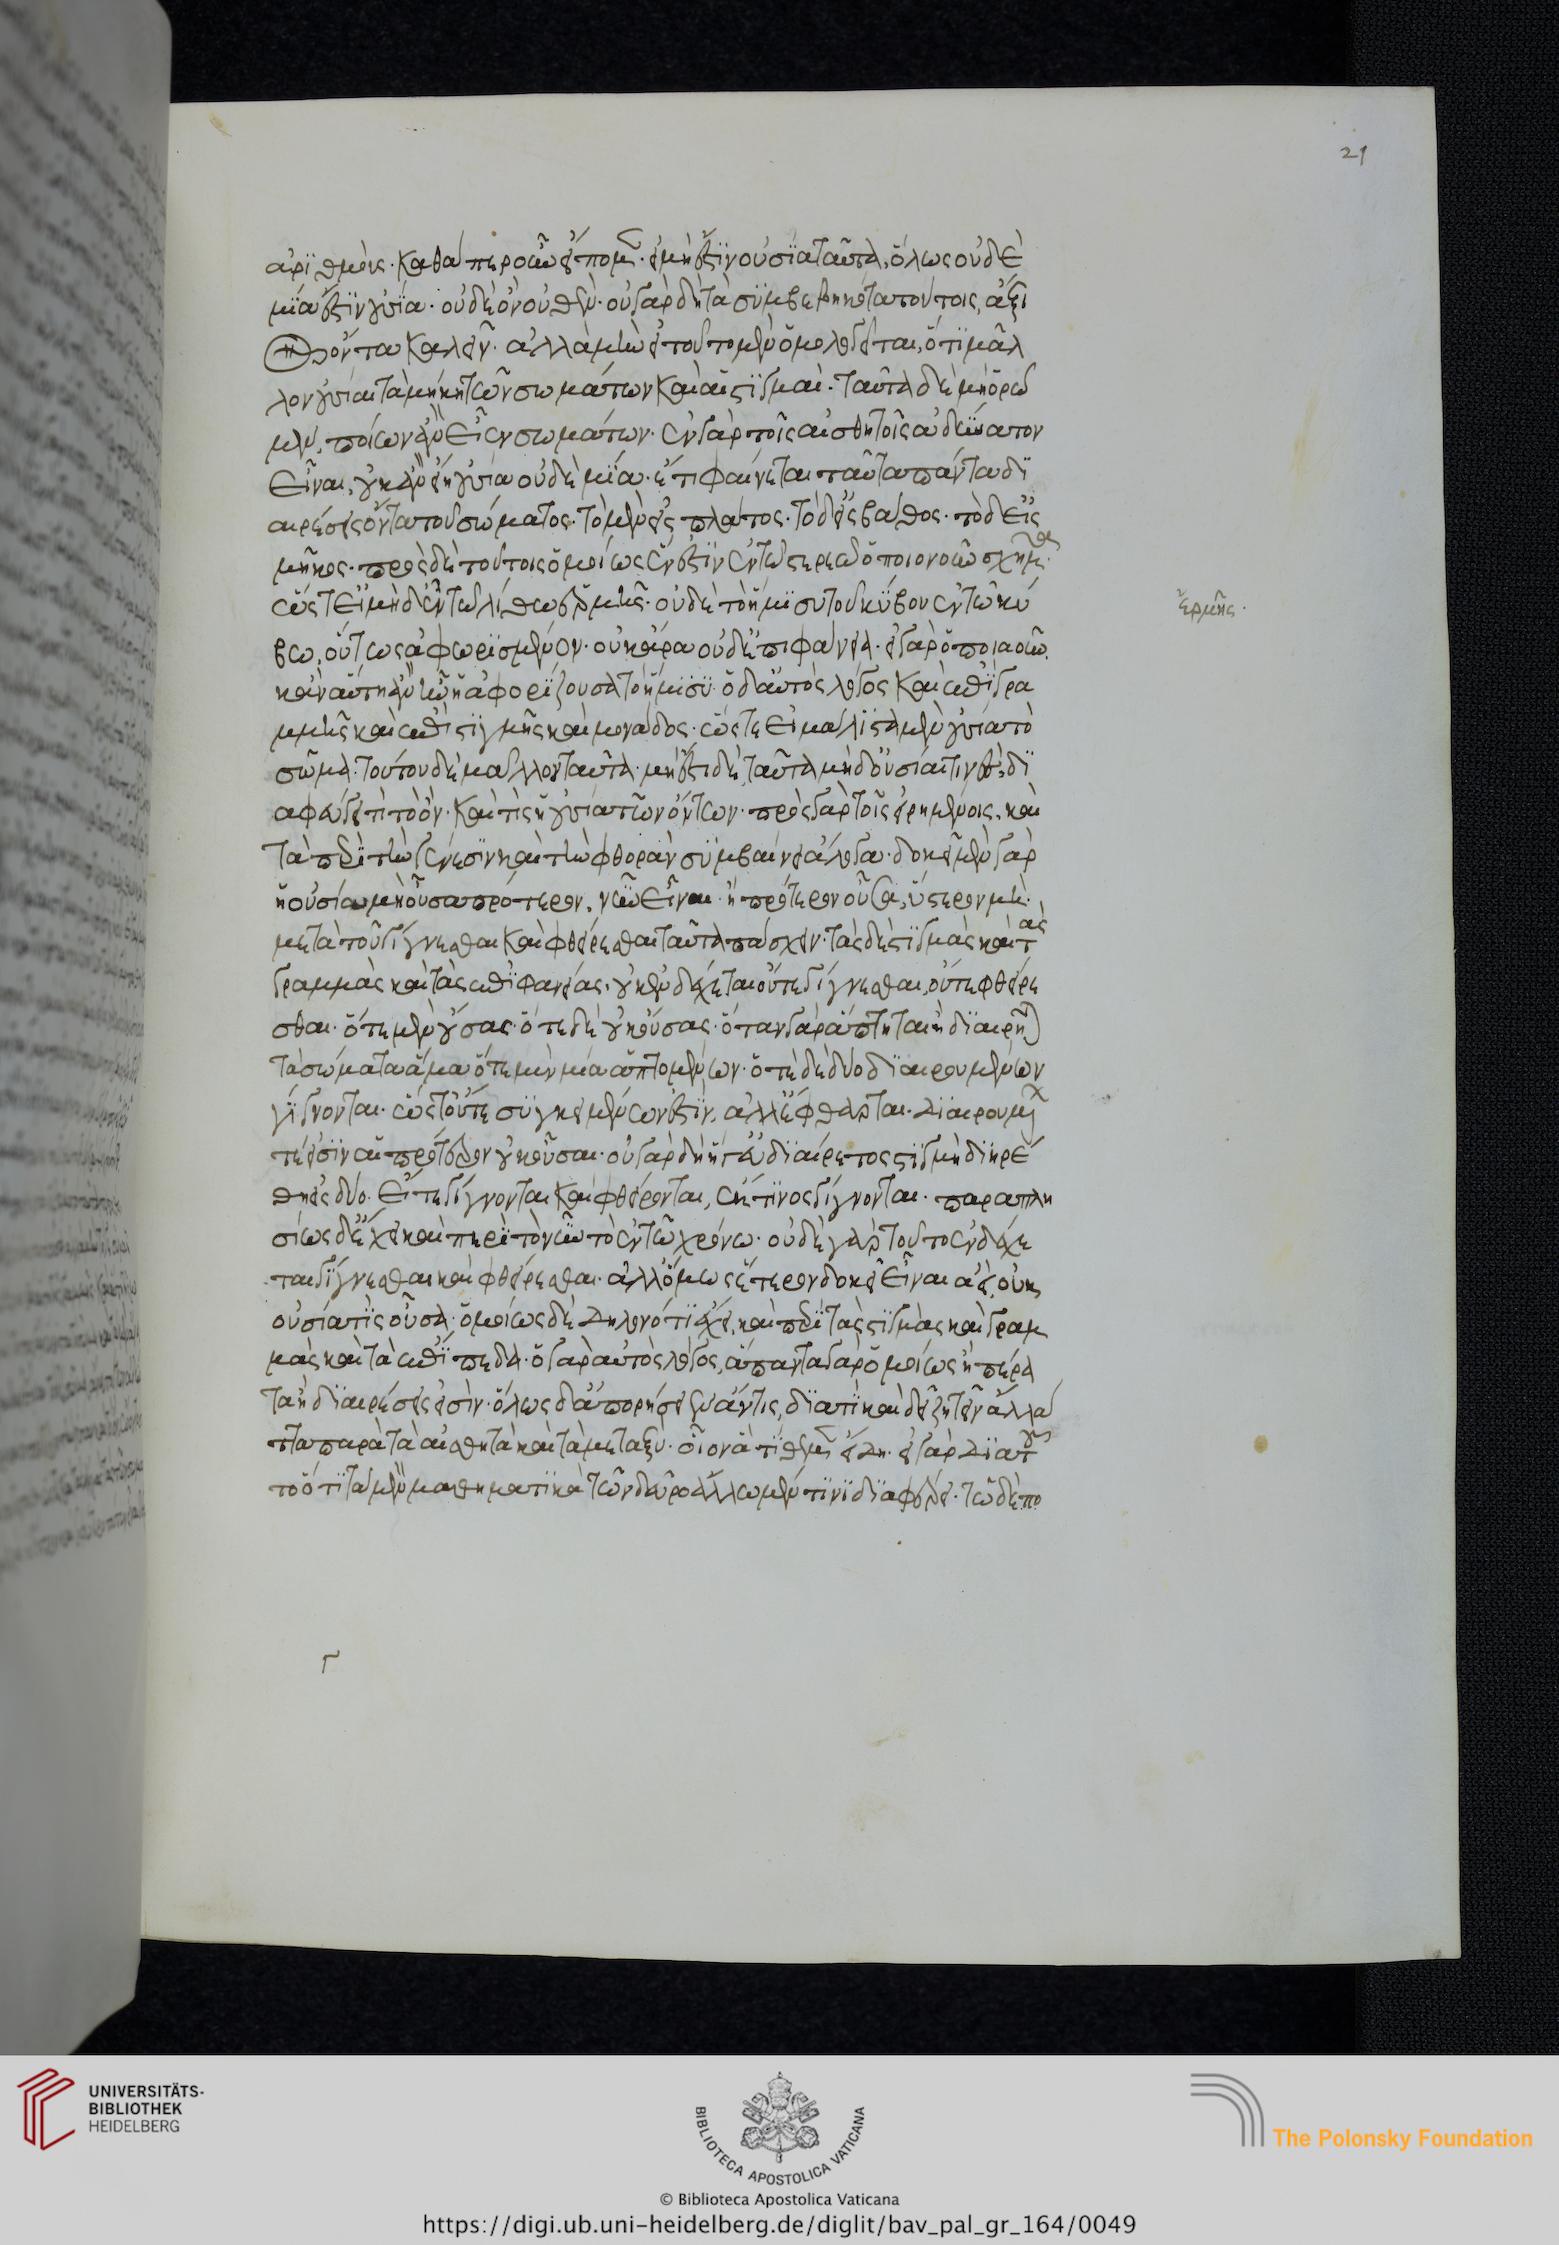 21
ἀριθμοῖς· καθάπερ οὖν εἴπομεν· εἰ μὴ ἔστιν οὐσία ταῦτα, ὅλως οὐδε
μία ἐστὶν οὐσία· οὐδὲ ὂν οὐθέν· οὐ γὰρ δὴ τὰ συμβεβηκότα τούτοις, ἄξι
ον ὄντα καλεῖν· ἀλλὰ μὴν εἰ τοῦτο μὲν ὁμολογεῖται, ὅτι μᾶλ
λον οὐσία τὰ μήκη τῶν σωμάτων καὶ αἱ στιγμαί· ταῦτα δὲ μὴ ὁρῶ
μεν, ποίων ἂν εἶεν σωμάτων· ἐν γὰρ τοῖς αἰσθητοῖς ἀδύνατον
εἶναι, οὐκ ἂν εἴη οὐσία οὐδεμία· ἔτι φαίνεται ταῦτα πάντα δι
αιρέσεις ὄντα τοῦ σώματος· τὸ μὲν εἰς πλάτος· τὸ δ' εἰς βάθος· τὸ δ' εἰς
μῆκος· πρὸς δὲ τούτοις ὁμοίως ἔνεστιν ἐν τῷ στερεῷ ὁποιονοῦν σχῆμα·
ὥστ' εἰ μηδ' ἐν τῷ λίθῳ ἑρμῆς· οὐδὲ τὸ ἥμισυ τοῦ κύβου ἐν τῷ κύ
ἑρμῆς·
βῳ, οὕτως ἀφωρισμένον· οὐκ ἄρα οὐδ' ἐπιφάνεια· εἰ γὰρ ὁποιαοῦν,
κἂν αὕτη ἂν ἦν ἡ ἀφορίζουσα τὸ ἥμισυ· ὁ δ' αὐτὸς λόγος καὶ ἐπὶ γρα
μμῆς καὶ ἐπὶ στιγμῆς καὶ μονάδος· ὥστε εἰ μάλιστα μὲν οὐσία τὸ
σῶμα· τούτου δὲ μᾶλλον ταῦτα· μὴ ἔστι δὲ ταῦτα μηδ' οὐσίαι τινές, δι
αφεύγει τί τὸ ὄν· καὶ τίς ἡ οὐσία τῶν ὄντων· πρὸς γὰρ τοῖς εἰρημένοις, καὶ
τὰ περὶ τὴν γένεσιν καὶ τὴν φθορὰν συμβαίνει ἄλογα· δοκεῖ μὲν γὰρ
ἡ οὐσία μὴ οὖσα πρότερον, νῦν εἶναι· ἢ πρότερον οὖσα, ὕστερον μὴ·
μετὰ τοῦ γίγνεσθαι καὶ φθείρεσθαι ταῦτα πάσχειν· τὰς δὲ στιγμὰς καὶ τὰς
γραμμὰς καὶ τὰς ἐπιφανείας· οὐκ ἐνδέχεται οὔτε γίγνεσθαι, οὔτε φθείρε
σθαι· ὁτὲ μὲν οὔσας· ὁτὲ δὲ οὐκ οὔσας· ὅταν γὰρ ἅπτηται ἢ διαιρῆται
τὰ σώματα ἅμα ὁτὲ μὲν μία ἁπτομένων· ὁτὲ δὲ δύο διαιρουμένων
γίγνονται· ὥστ' οὔτε συγκειμένων ἐστίν, ἀλλ' ἔφθαρται· διαιρουμένων
τε εἰσὶν αἱ πρότερον οὐκ οὖσαι· οὐ γὰρ δὴ ἥ γ' ἀδιαίρετος στιγμὴ διῃρέ
θη εἰς δύο· εἴτε γίγνονται καὶ φθείρονται, ἐκ τίνος γίγνονται· παραπλη
σίως δ' ἔχει καὶ περὶ τὸ νῦν τὸ ἐν τῷ χρόνῳ· οὐδὲ γὰρ τοῦτο ἐνδέχε
ται γίγνεσθαι καὶ φθείρεσθαι· ἀλλ' ὅμως ἕτερον δοκεῖ εἶναι ἀεί, οὐκ
οὐσία τις οὖσα· ὁμοίως δὲ δῆλον ὅτι ἔχει, καὶ περὶ τὰς στιγμὰς καὶ γραμ
μὰς καὶ τὰ ἐπίπεδα· ὁ γὰρ αὐτὸς λόγος, ἅπαντα γὰρ ὁμοίως ἢ πέρα
τα ἢ διαιρέσεις εἰσίν· ὅλως δ' ἀπορήσειεν ἄν τις, διατί καὶ δεῖ ζητεῖν ἄλλα
ττα παρὰ τὰ αἰσθητὰ καὶ τὰ μεταξύ· οἷον ἃ τίθεμεν εἴδη· εἰ γὰρ διὰ τοῦ
το ὅτι τὰ μὲν μαθηματικὰ τῶν δεῦρο ἄλλῳ μέν τινι διαφέρει· τῷ δὲ πο
Γ
UNIVERSITÄTS-
BIBLIOTHEK
HEIDELBERG
BIBLIOTECA APOSTOLICA VATICANA
The Polonsky Foundation
© Biblioteca Apostolica Vaticana
https://digi.ub.uni-heidelberg.de/diglit/bav_pal_gr_164/0049